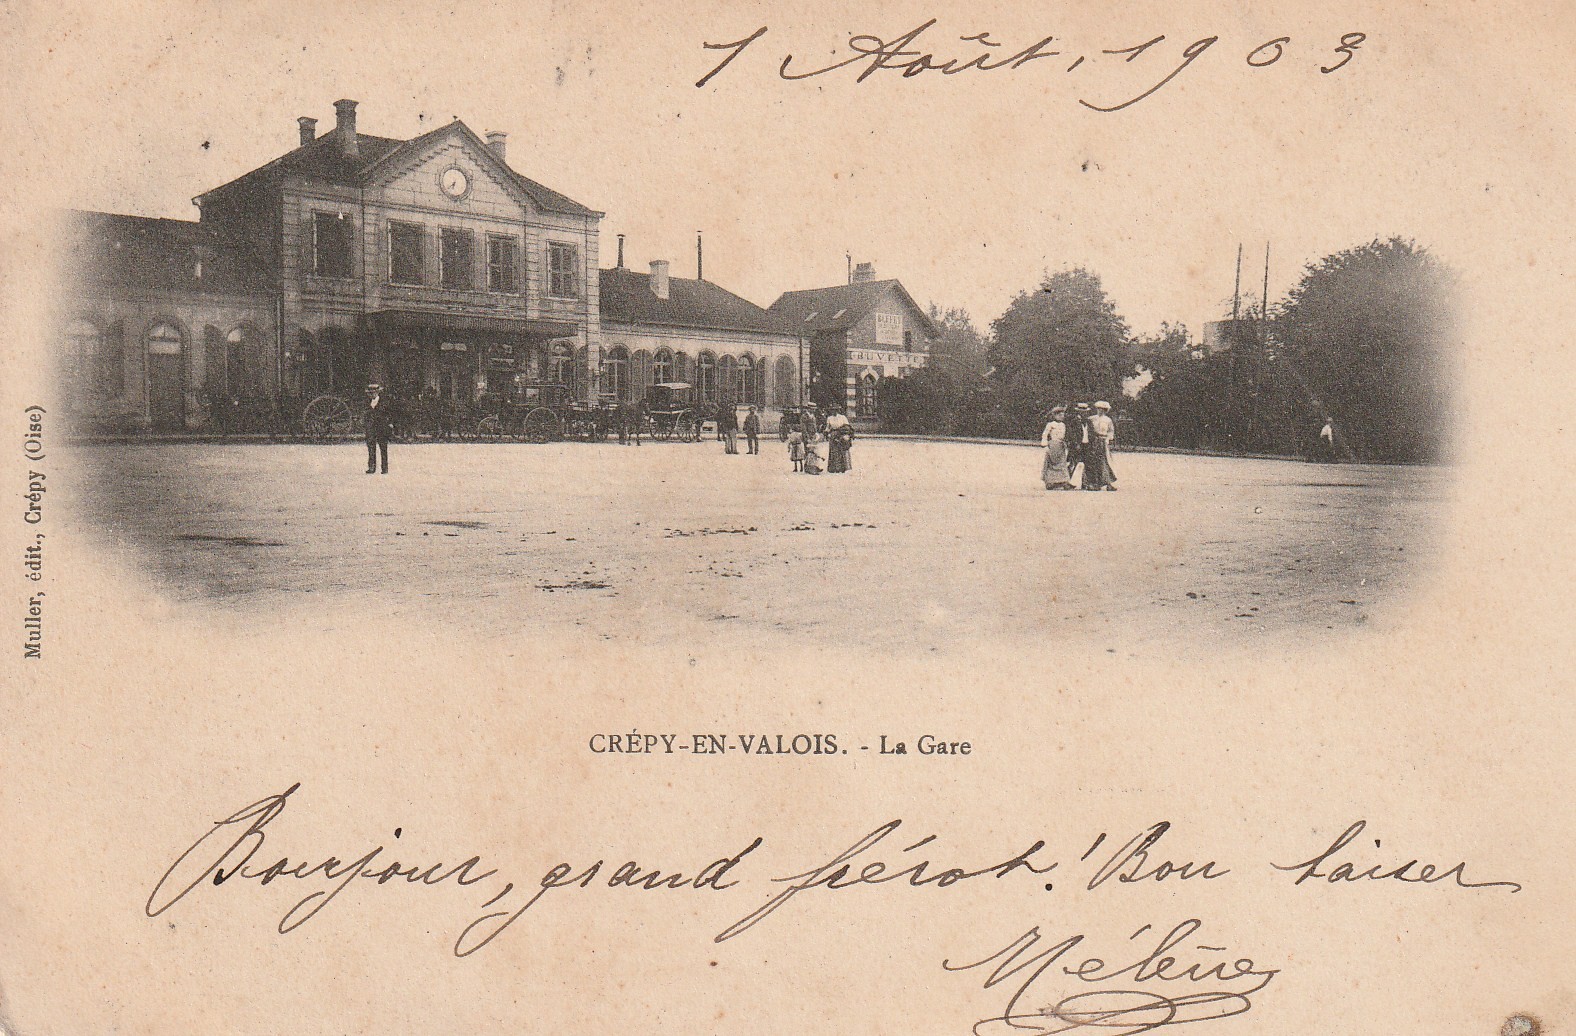 1 Août, 1903
BUVETTE
Muller, édit., Crépy (Oise)
CRÉPY-EN-VALOIS. - La Gare
Bonjour, grand frérot! Bon baiser